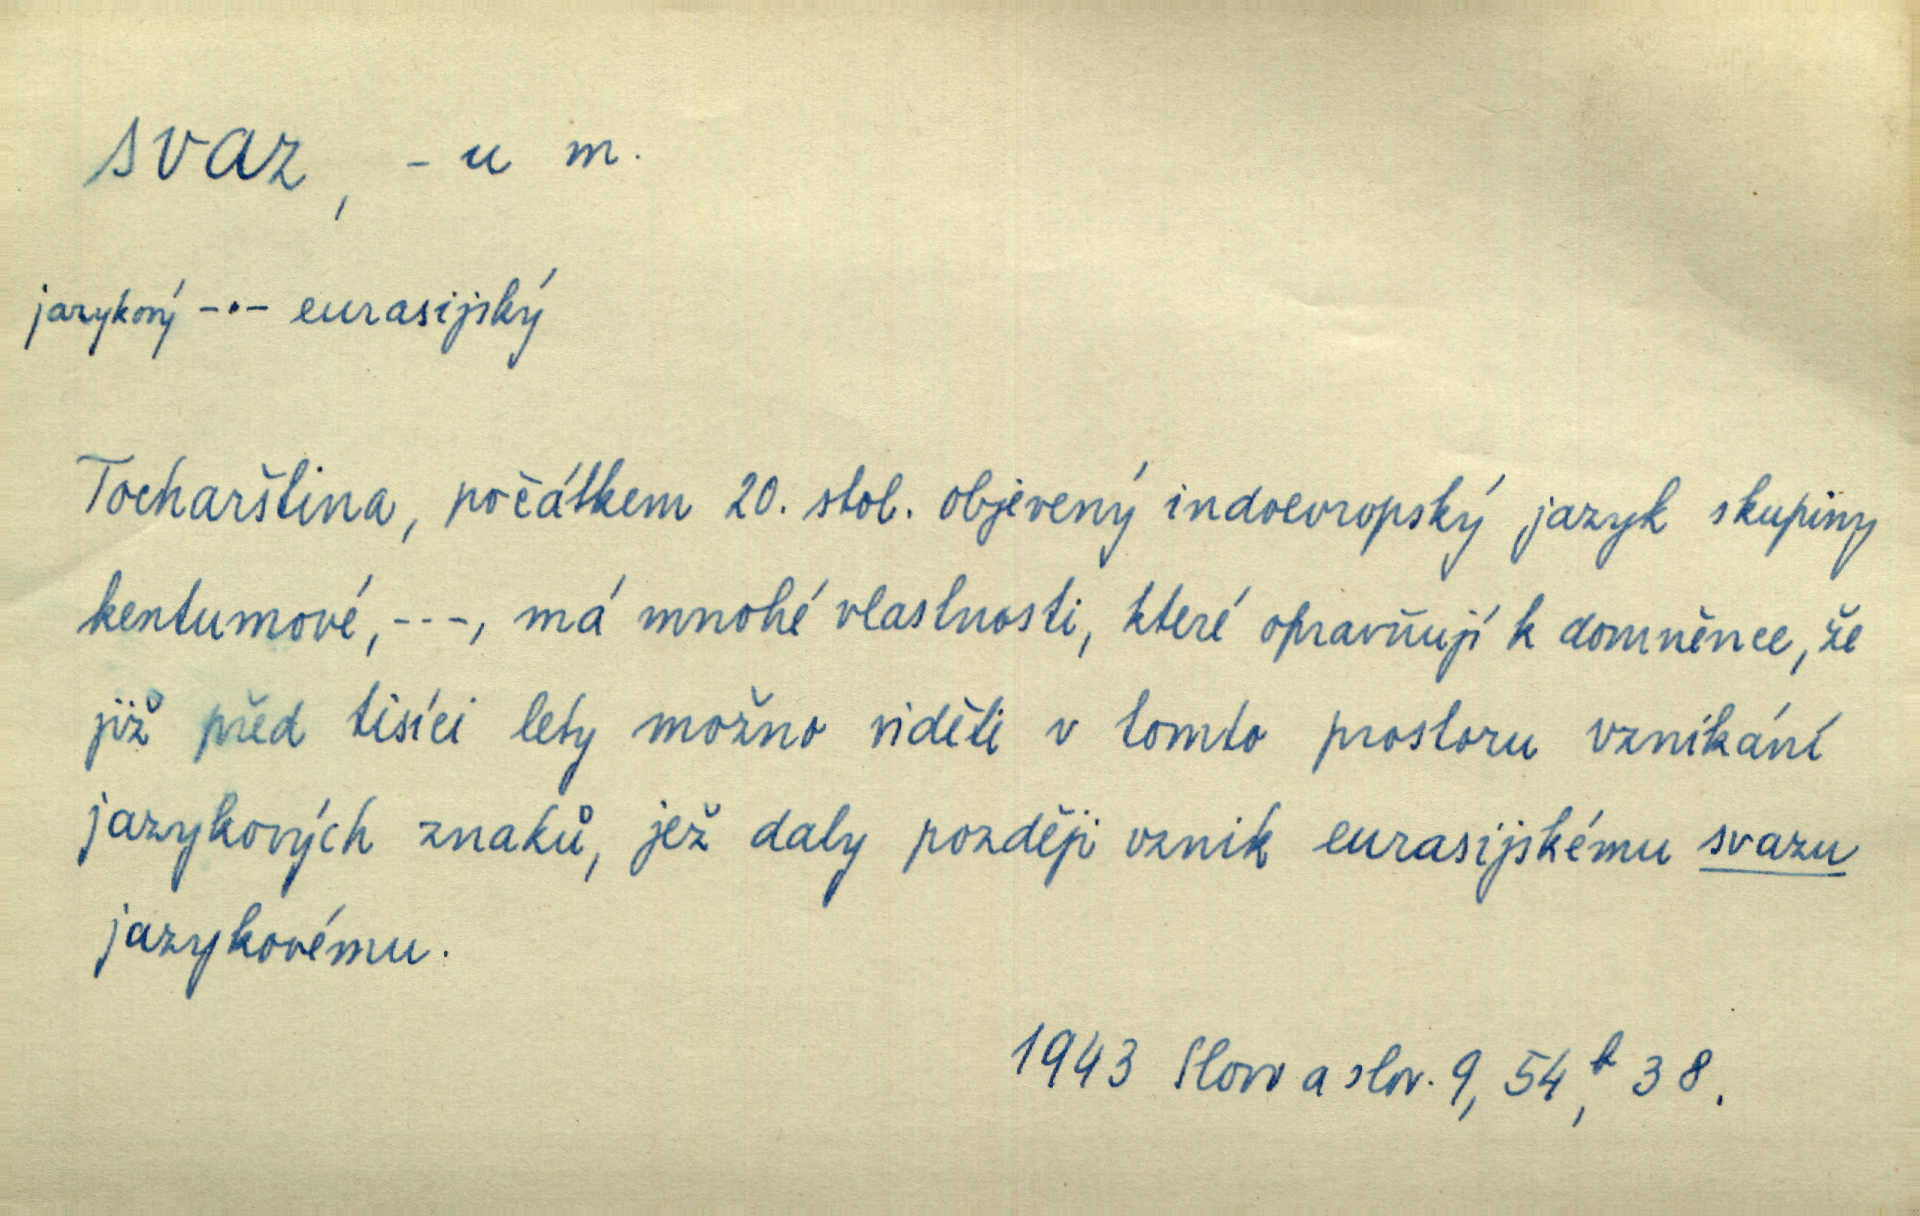 svaz, -u m.
jazykový -•- eurasijský
Tocharština, počátkem 20. stol. objevený indoevropský jazyk skupiny
kentumové, ---, má mnohé vlastnosti, které opravňují k domněnce, že
již před tisíci lety možno viděti v tomto prostoru vznikání
jazykových znaků, jež daly později vznik eurasijskému svazu
jazykovému.
1943 Slovo a slov. 9, 54, b 38.